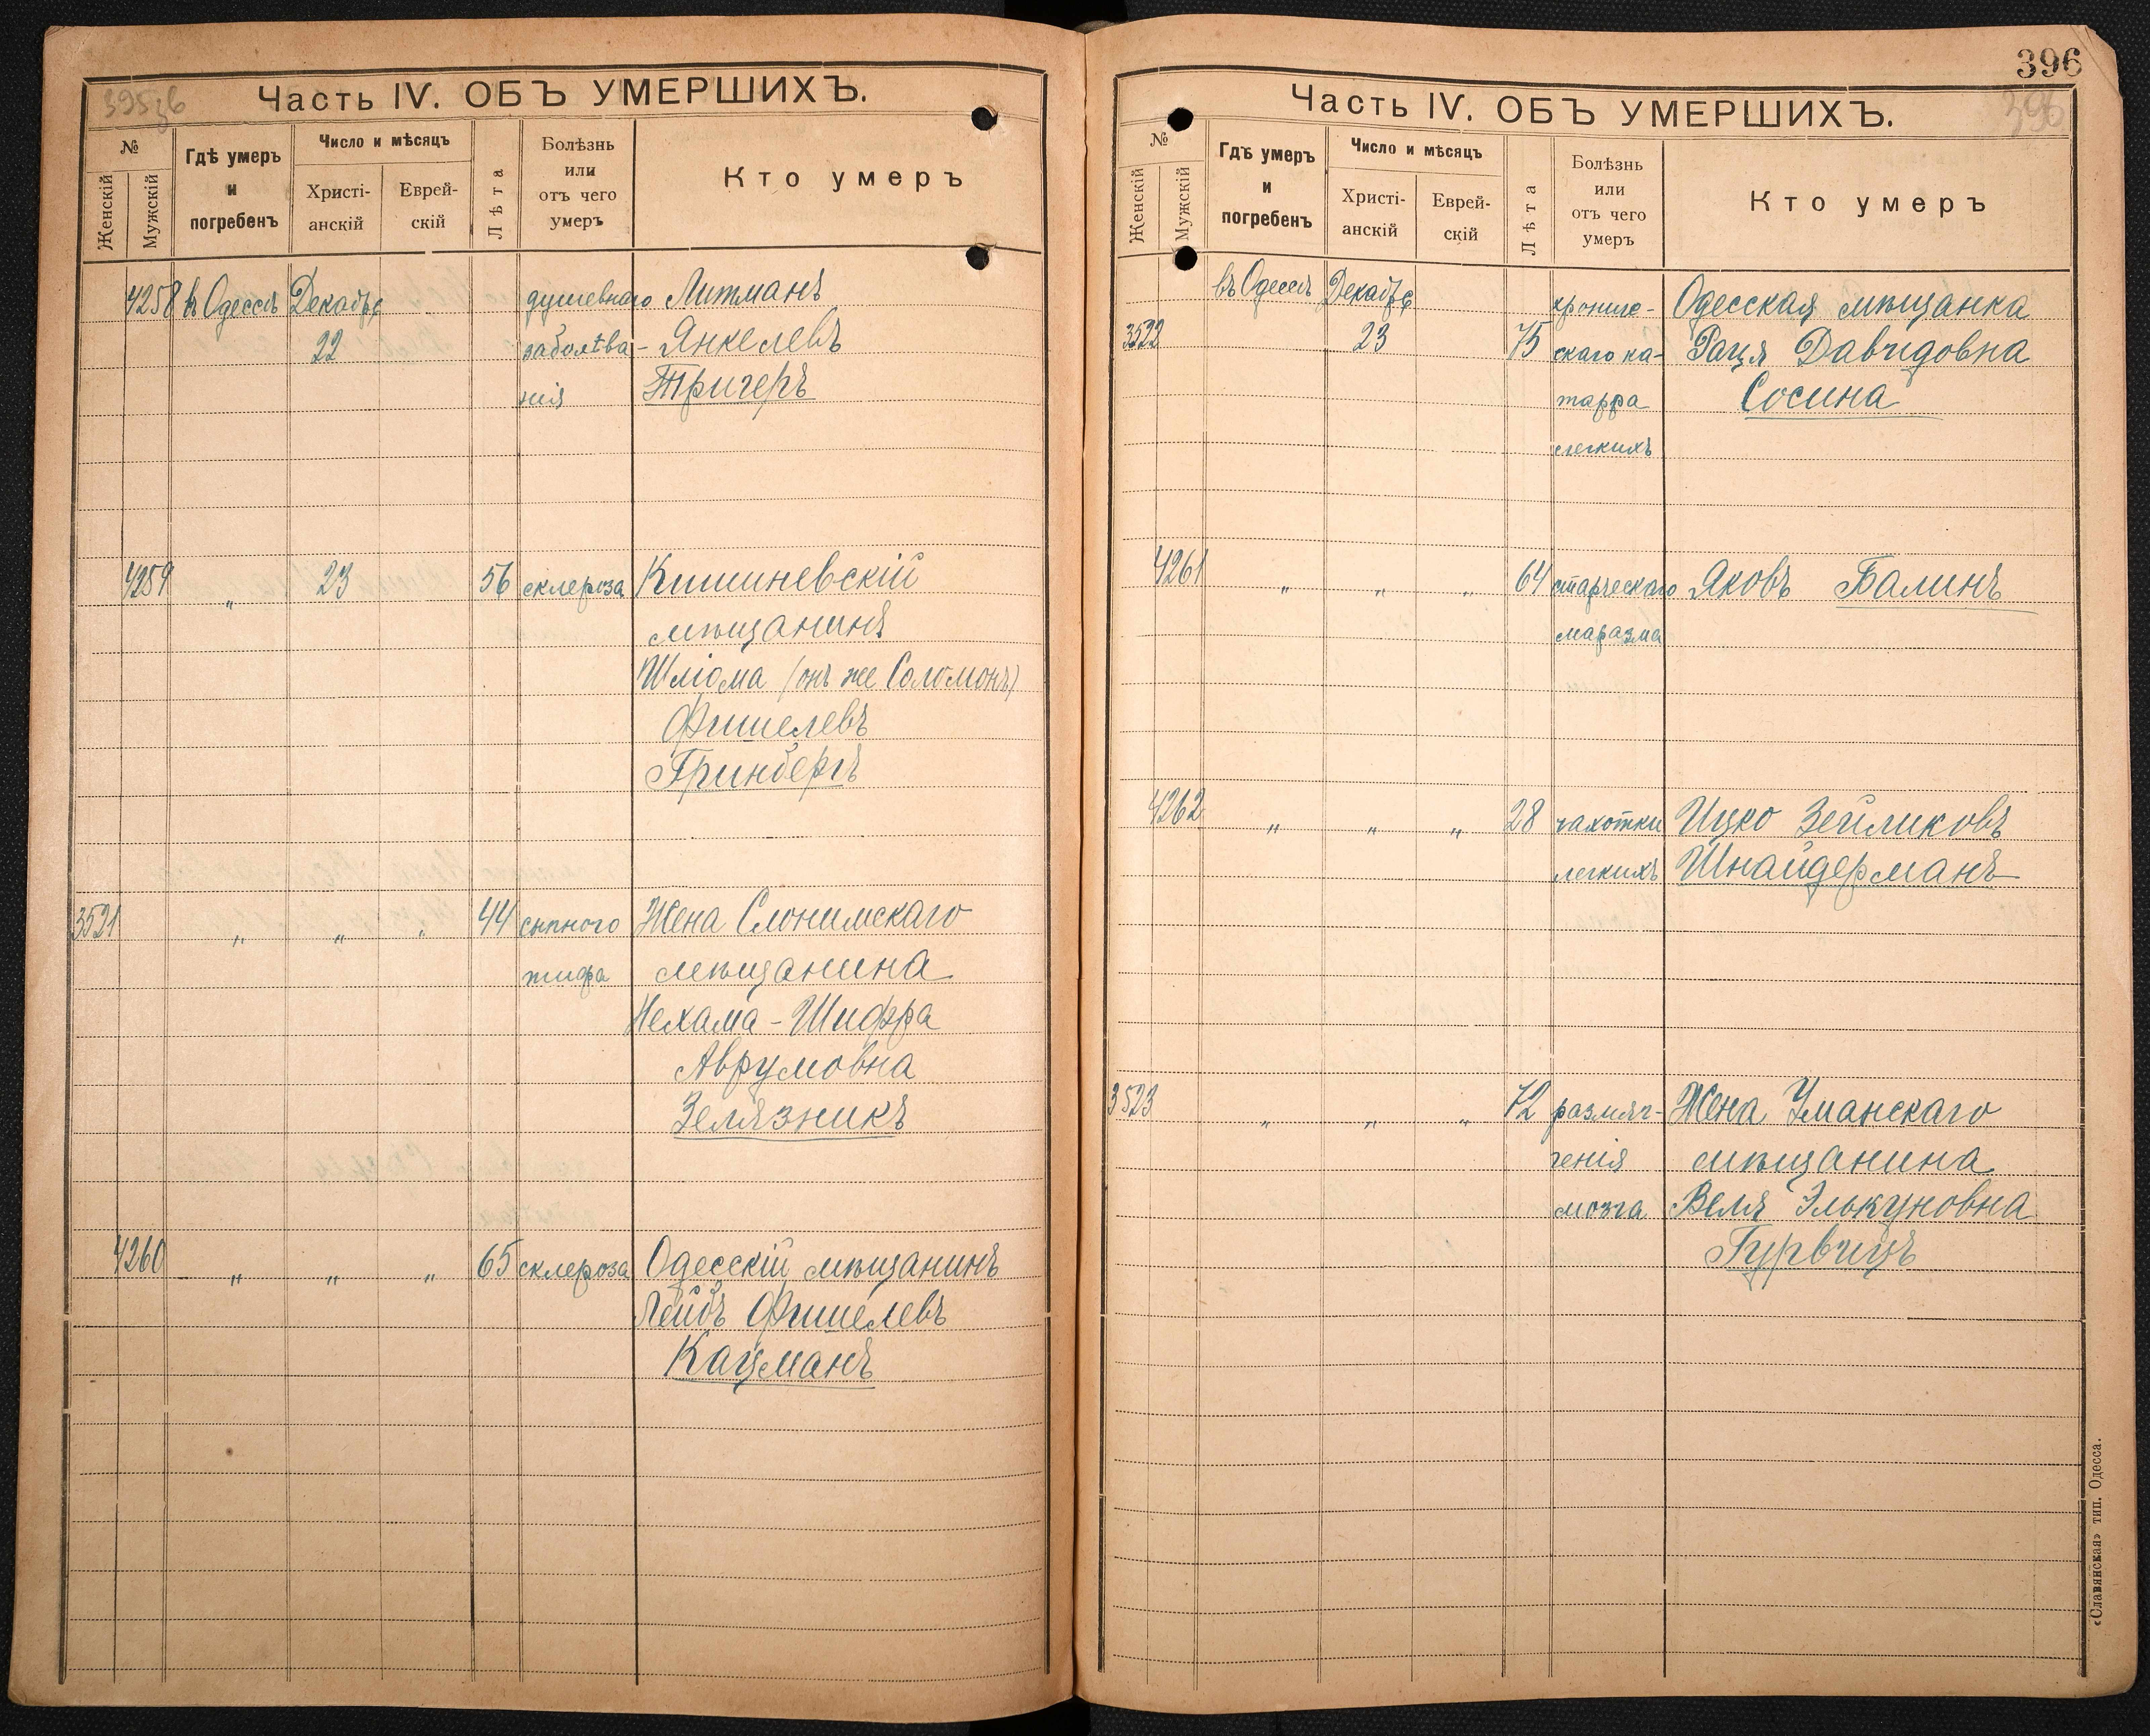 395 об
Часть IV. ОБЪ УМЕРШИХЪ.
№
Женскій
Мужскій
Гдѣ умеръ
и
погребенъ
Число и мѣсяцъ
Христі-
анскій
Еврей-
скій
Лѣта
Болѣзнь
или
отъ чего
умеръ
Кто умеръ
4258 въ Одессѣ Декабрѣ душевнаго Литманъ
22 заболѣва- Янкелевъ
нія Тригеръ
4259 " 23 56 склероза Кишиневскій
мѣщанинъ
Шлiома (онъ же Соломонъ)
Фишелевъ
Гринбергъ
3521 " " " 44 сыпного Жена Слонимскаго
тифа мѣщанина
Нехама-Шифра
Аврумовна
Зелязникъ
4260 " " " 65 склероза Одесскій мѣщанинъ
Лейбъ Фишелевъ
Кацманъ
396
396
Часть IV. ОБЪ УМЕРШИХЪ.
№
Женскій
Мужскій
Гдѣ умеръ
и
погребенъ
Число и мѣсяцъ
Христі-
анскій
Еврей-
скій
Лѣта
Болѣзнь
или
отъ чего
умеръ
Кто умеръ
въ Одессѣ Декабрѣ хрониче- Одесская мѣщанка
3522 23 75 скаго ка- Рася Давидовна
тарра Сосина
легкихъ
4261 " " " 64 старческаго Яковъ Балинъ
маразма
4262 " " " 28 чахотки Ицко Зейликовъ
легкихъ Шнайдерманъ
3523 " " " 72 размяг- Жена Уманскаго
ченія мѣщанина
мозга Веля Элькуновна
Гурвицъ
«Славянская» тип. Одесса.